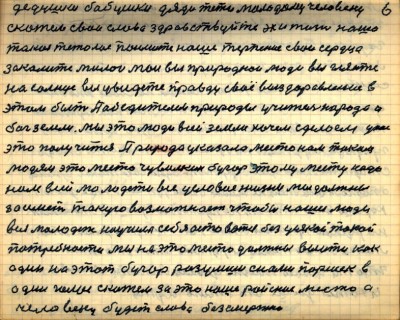 дедушки бабушки дяди тети молодому человеку 6
скажем свои слова здравствуйте эх и жизнь наша
такая поймите наше терпение свои сердца
закалите милои мои вы природнои люди вы гляньте
на солнце вы увидете правду своё выздоровление в
этом быть Победителем природы учителя народа а
бог земли. мы это люди всей земли начем сделаем
это получится Природа указала место нам таким
людям это место чувилкин бугор этому месту надо
нам всем молодеть все условие жизни мы должны
занимет такую возможность чтобы наши люди
вся молодеж научился себя оставать без всякой такой
потребности мы на это место должны выйти как
один на этот бугор разумши снами паршек в
один голос скажем за это наше райское место а
человеку будет слава бессмертно